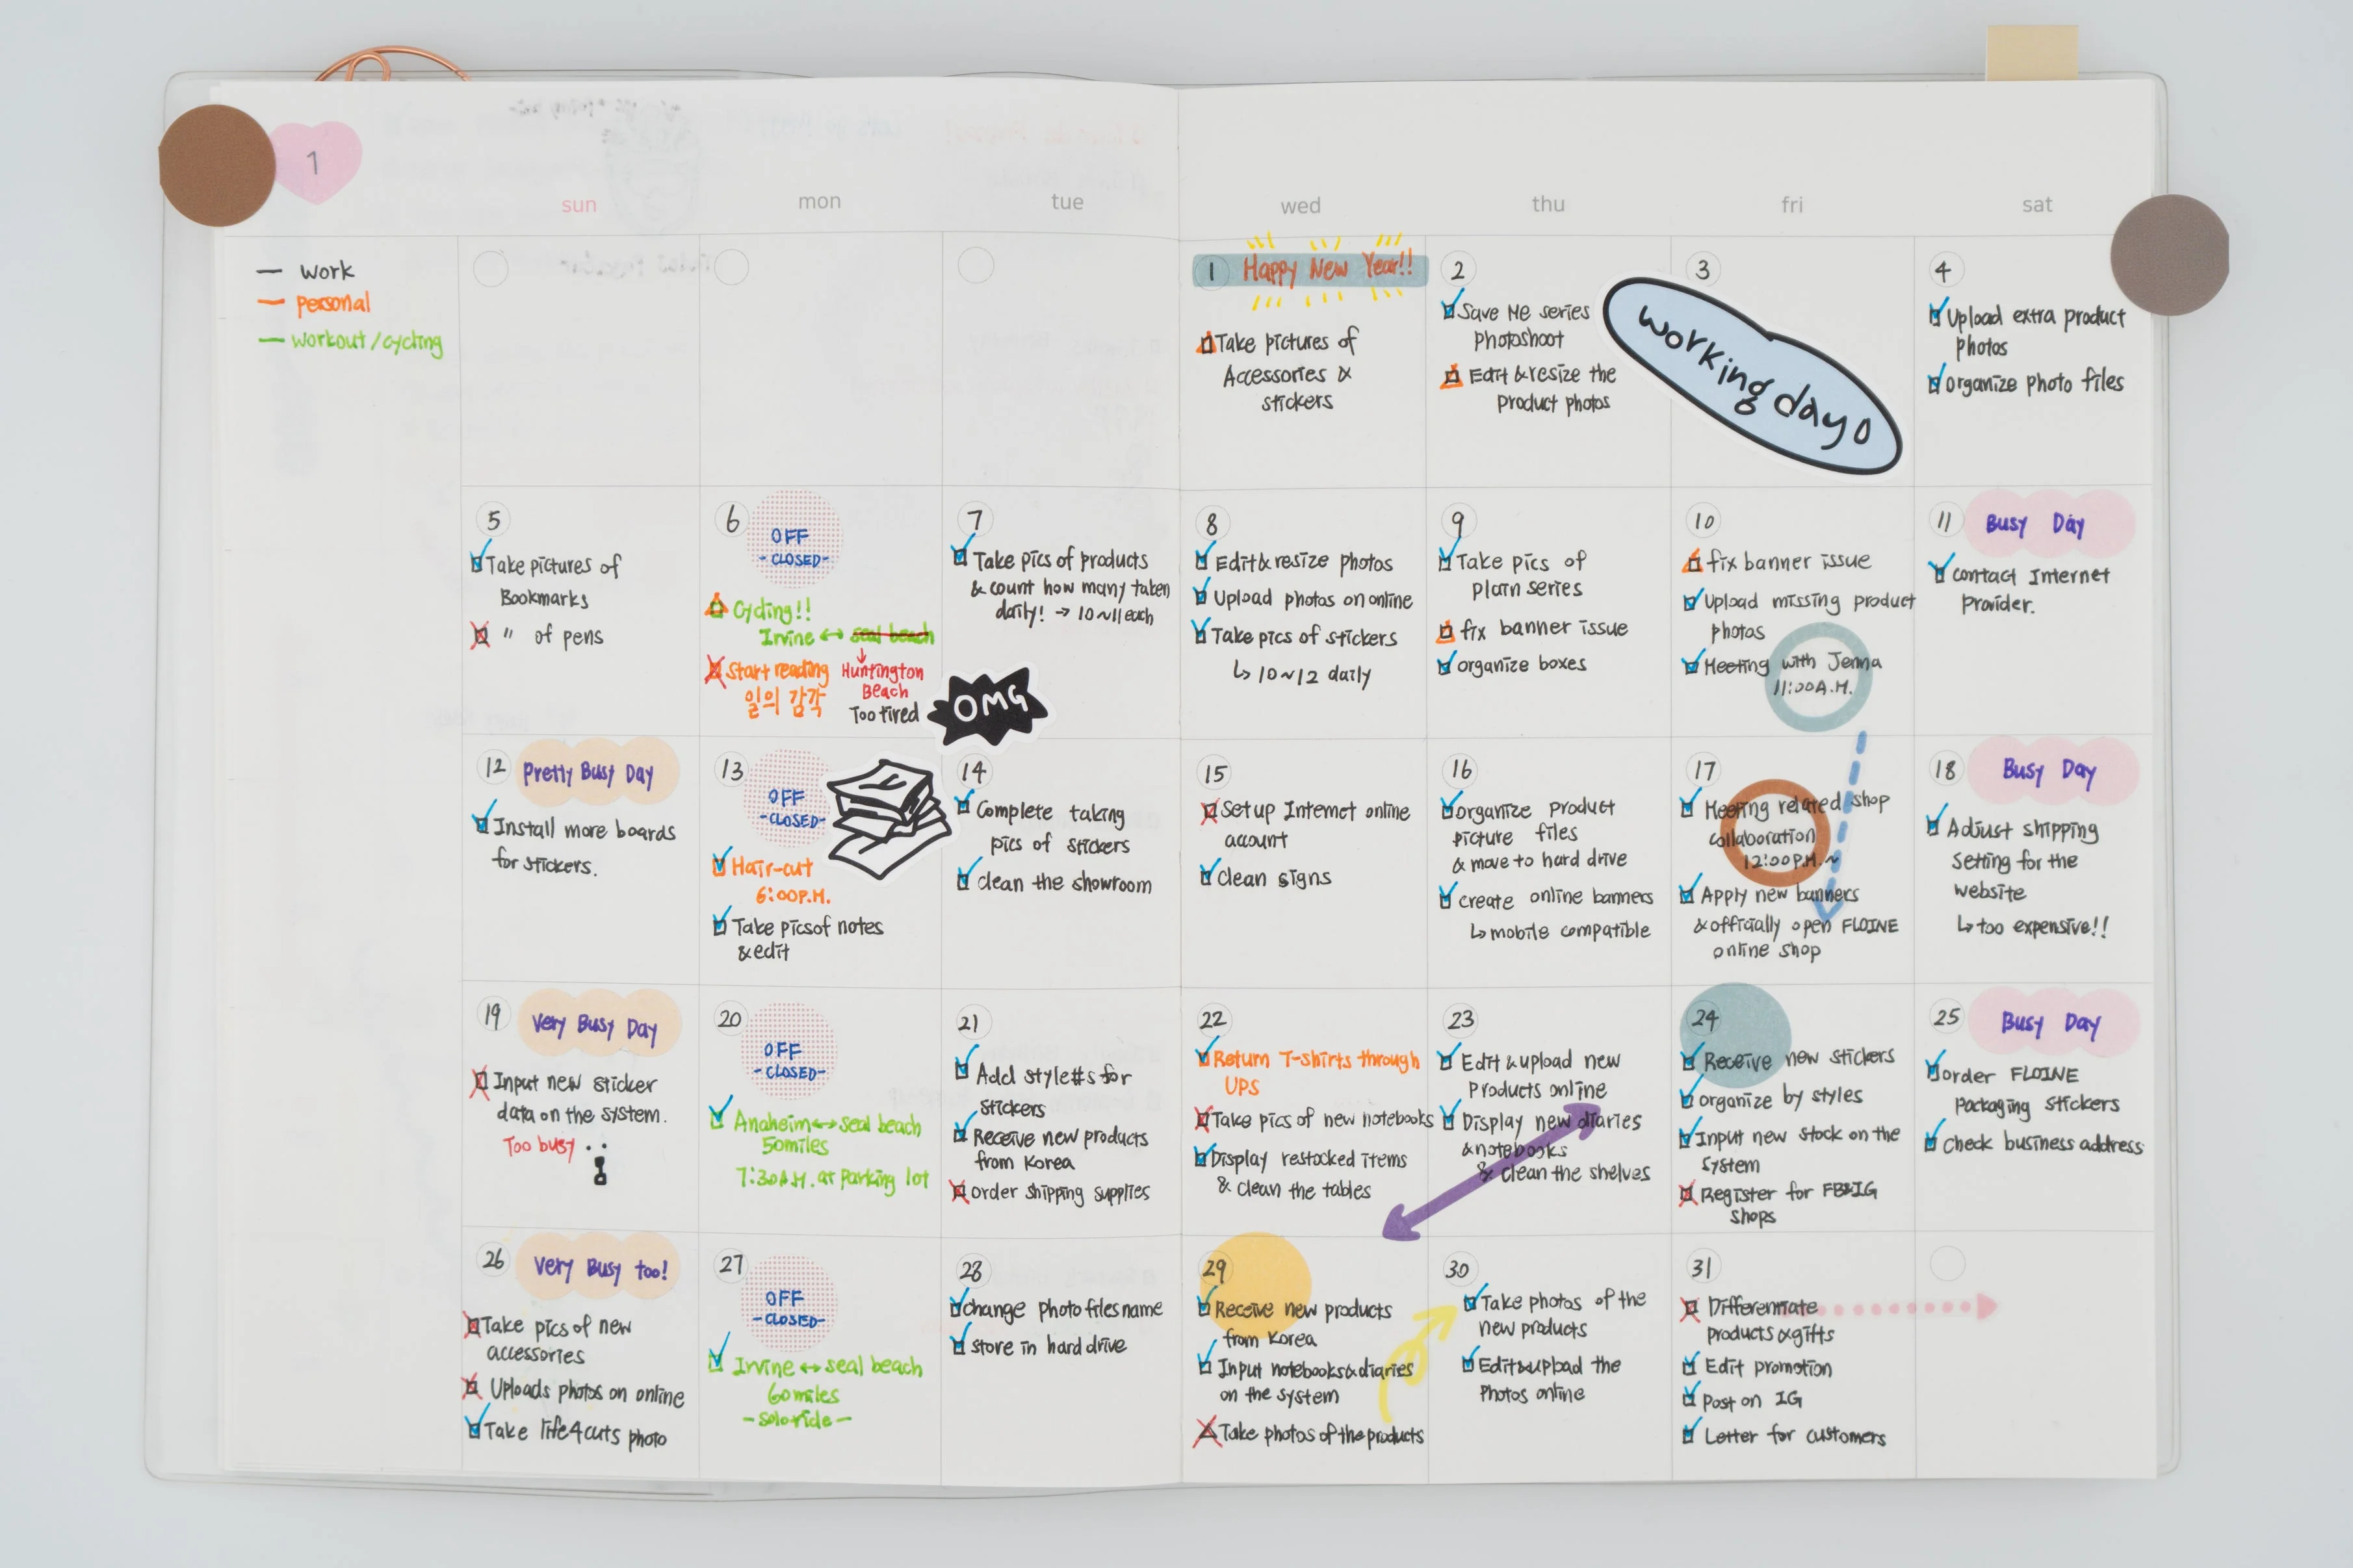 1
sun mon tue wed thu fri sat
— work
— personal
— workout/cycling
1 Happy New Year!!
Take pictures of
Accessories &
stickers
2
Save Me series
photoshoot
Edit & resize the
product photos
3
working day
4
Upload extra product
photos
organize photo files
5
Take pictures of
Bookmarks
" of pens
6
OFF
- CLOSED -
Cycling!!
Irvine ↔ seal beach
↓
Huntington
Beach
Too tired
Start reading
일의 감각
7
Take pics of products
& count how many taken
daily! → 10~11 each
OMG
8
Edit & resize photos
Upload photos on online
Take pics of stickers
↳ 10~12 daily
9
Take pics of
plain series
fix banner issue
organize boxes
10
fix banner issue
Upload missing product
photos
Meeting with Jenna
11:00 A.M.
11 Busy Day
contact Internet
Provider.
12 Pretty Busy Day
Install more boards
for stickers.
13
OFF
- CLOSED -
Hair-cut
6:00 P.M.
Take pics of notes
& edit
14
Complete taking
pics of stickers
clean the showroom
15
Setup Internet online
account
clean signs
16
organize product
picture files
& move to hard drive
create online banners
↳ mobile compatible
17
Meeting related shop
collaboration
12:00 P.M. ~
Apply new banners
& officially open FLOINE
online shop
18 Busy Day
Adjust shipping
setting for the
website
↳ too expensive!!
19 Very Busy Day
Input new sticker
data on the system.
Too busy
20
OFF
- CLOSED -
Anaheim ↔ seal beach
50miles
7:30 A.M. at parking lot
21
Add style#s for
stickers
Receive new products
from Korea
order shipping supplies
22
Return T-shirts through
UPS
Take pics of new notebooks
Display restocked items
& clean the tables
23
Edit & upload new
Products online
Display new diaries
& notebooks
& clean the shelves
24
Receive new stickers
organize by styles
Input new stock on the
system
Register for FB&IG
shops
25 Busy Day
order FLOINE
Packaging stickers
Check business address
26 Very Busy too!
Take pics of new
accessories
Uploads photos on online
Take life4cuts photo
27
OFF
- CLOSED -
Irvine ↔ seal beach
60miles
- solo ride -
28
change photo files name
store in hard drive
29
Receive new products
from Korea
Input notebooks & diaries
on the system
Take photos of the products
30
Take photos of the
new products
Edit & upload the
Photos online
31
Differentiate
products & gifts
Edit promotion
Post on IG
Letter for customers